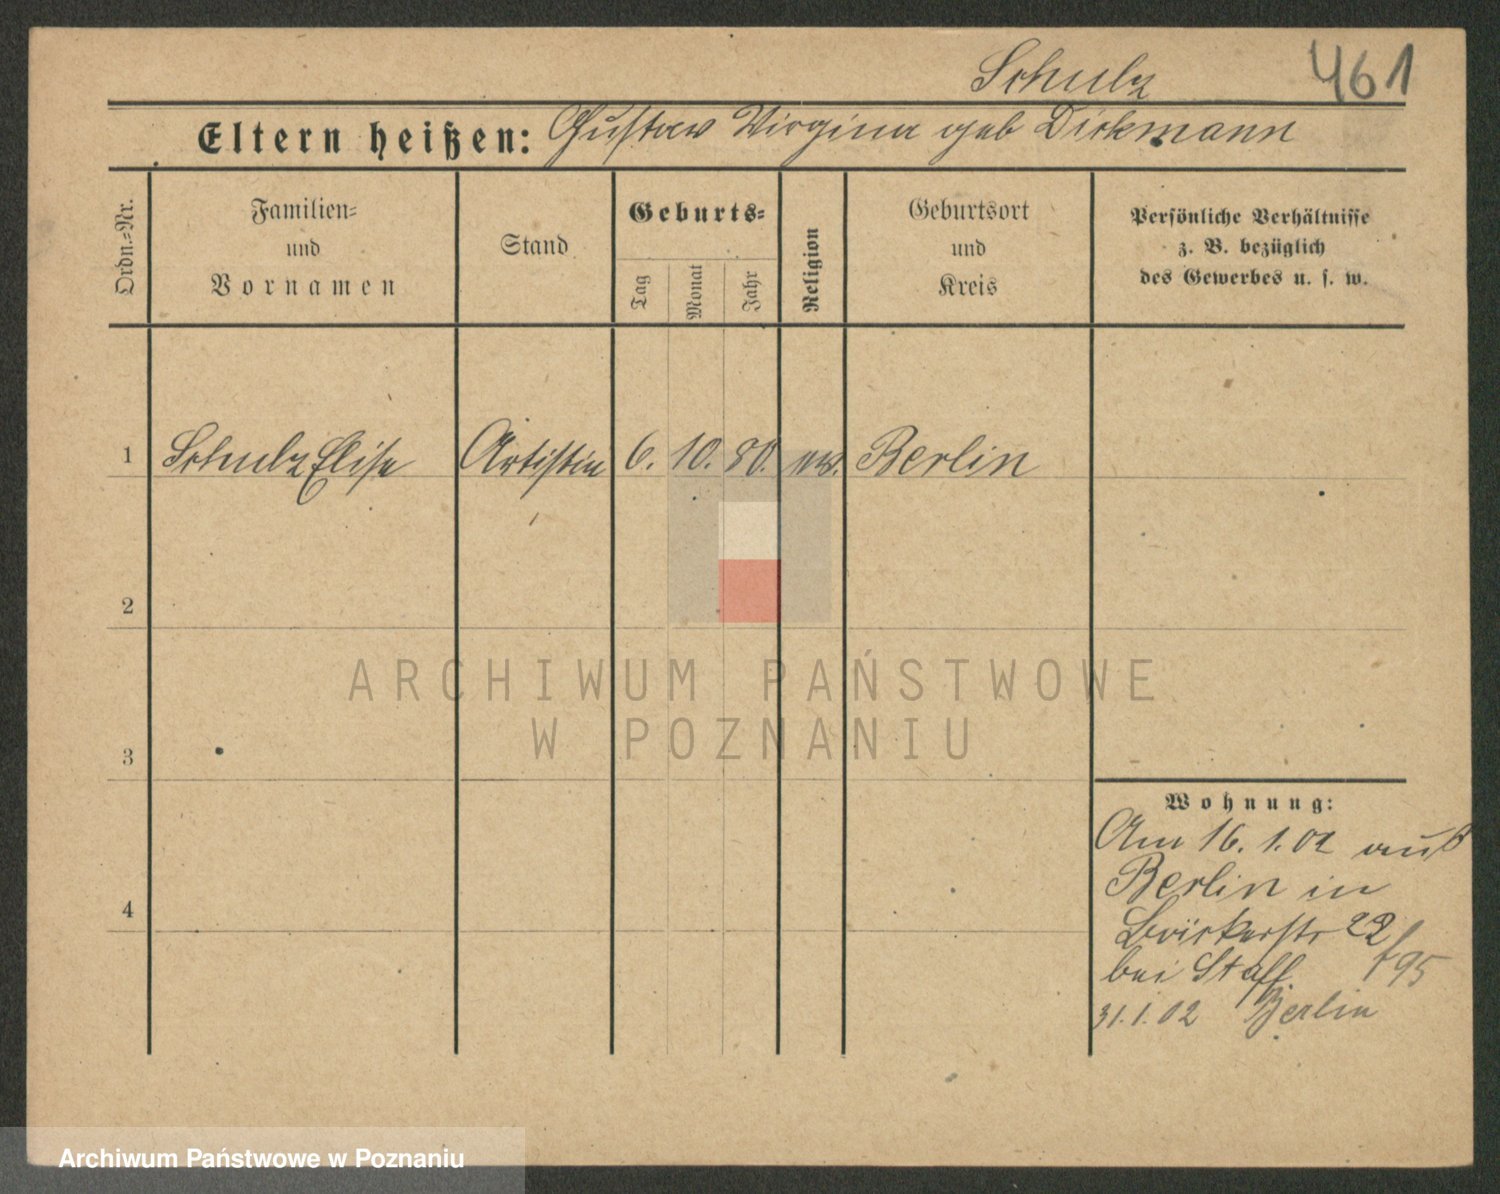 Schulz 461
Eltern heißen: Gustav Virgina geb Dickmann
Ordn.=Nr.
Familien=
und
Vornamen
Stand
Geburts=
Tag
Monat
Jahr
Religion
Geburtsort
und
Kreis
Persönliche Verhältnisse
z. B. bezüglich
des Gewerbes u. s. w.
1 Schulz Elise Artistin 6. 10. 80. ev. Berlin
2
3
4
Wohnung:
Am 16. 1. 02 aus
Berlin in
22
bei Staff f 95
31. 1. 02 Berlin
ARCHIWUM PAŃSTWOWE
W POZNANIU
Archiwum Państwowe w Poznaniu